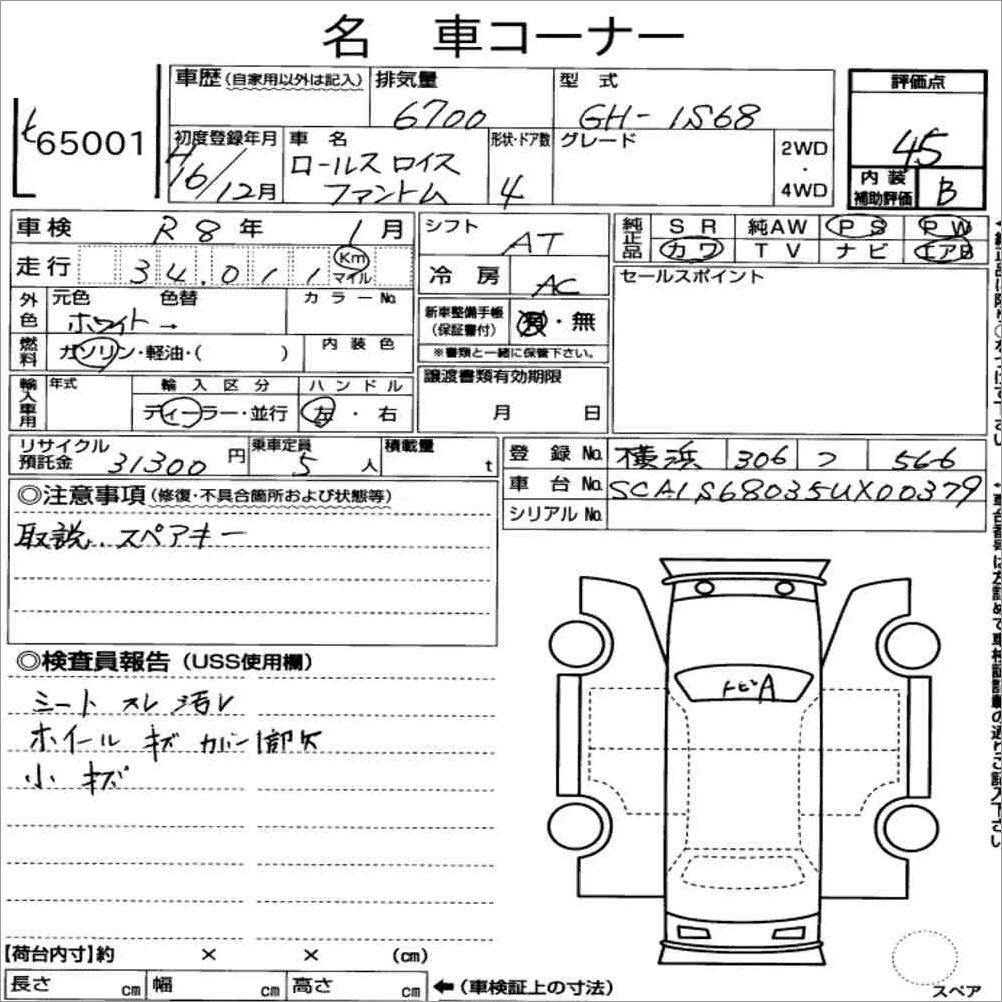 名 車コーナー
ヒ65001
車歴(自家用以外は記入) 排気量 6700 型 式 GH-1S68 評価点 4.5
初度登録年月 H16/12月 車 名 ロールス ロイス ファントム 形状・ドア数 4 グレード 2WD・4WD
内 装 補助評価 B
車検 R 8 年 1 月
走行 34,011 Km マイル
外色 元色 色替 カラーNo.
ホワイト→
燃料 ガソリン・軽油・( ) 内 装 色
輸入車用 年式 輸 入 区 分 ハ ン ド ル
ディーラー・並行 左・右
シフト AT
冷 房 AC
新車整備手帳(保証書付) 有・無
※書類と一緒に保管下さい。
譲渡書類有効期限
月 日
純正品 S R 純AW P S P W
カワ T V ナ ビ エアB
セールスポイント
リサイクル預託金 31300 円 乗車定員 5 人 積載量 t
登 録 No. 横浜 306 フ 566
車 台 No. SCA1S68035UX00379
シリアル No.
◎注意事項(修復・不具合箇所および状態等)
取説、スペアキー
◎検査員報告(USS使用欄)
シート スレ 汚レ
ホイール キズ カバー1部欠
小 キズ
トビA
【荷台内寸】約 × × (cm)
長さ cm 幅 cm 高さ cm ←(車検証上の寸法)
スペア